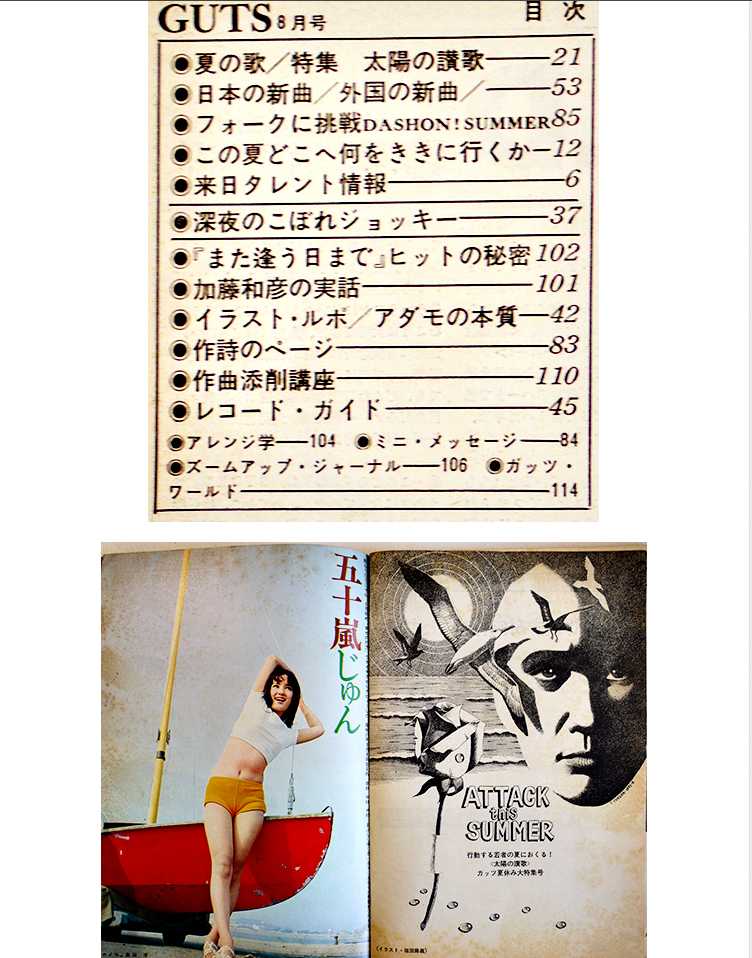 GUTS8月号 目次
●夏の歌／特集 太陽の讃歌――21
●日本の新曲／外国の新曲／――53
●フォークに挑戦DASHON!SUMMER85
●この夏どこへ何をききに行くか―12
●来日タレント情報――6
●深夜のこぼれジョッキー――37
●『また逢う日まで』ヒットの秘密102
●加藤和彦の実話――101
●イラスト・ルポ／アダモの本質―42
●作詩のページ――83
●作曲添削講座――110
●レコード・ガイド――45
●アレンジ学――104 ●ミニ・メッセージ――84
●ズームアップ・ジャーナル――106 ●ガッツ・
ワールド――114
五十嵐じゅん
ATTACK
this
SUMMER
行動する若者の夏におくる！
〈太陽の讃歌〉
ガッツ夏休み大特集号